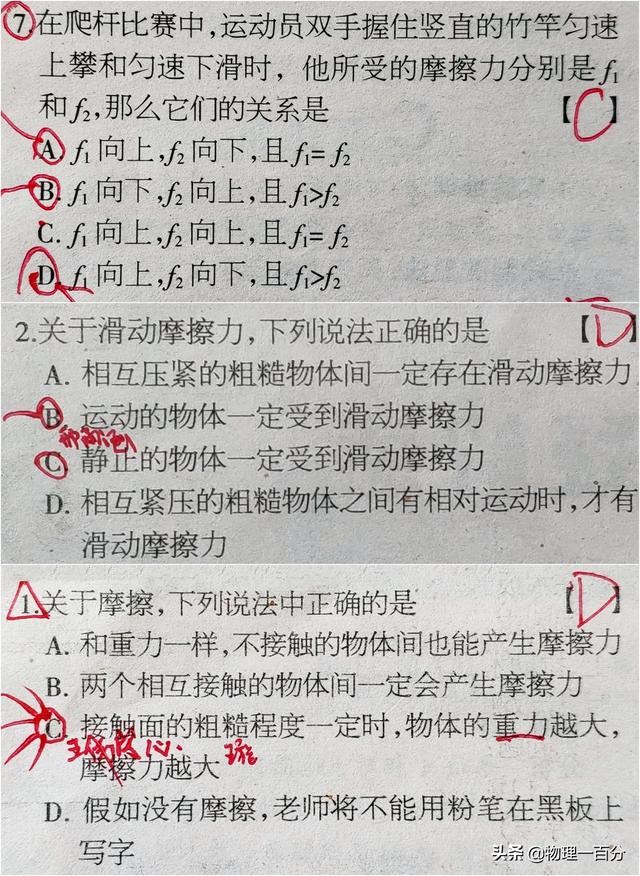 7.在爬杆比赛中,运动员双手握住竖直的竹竿匀速
上攀和匀速下滑时，他所受的摩擦力分别是f₁
和f₂,那么它们的关系是 【C】
A. f₁向上,f₂向下,且f₁=f₂
B. f₁向下,f₂向上,且f₁>f₂
C. f₁向上,f₂向上,且f₁=f₂
D. f₁向上,f₂向下,且f₁>f₂
2.关于滑动摩擦力,下列说法正确的是 【D】
A. 相互压紧的粗糙物体间一定存在滑动摩擦力
B. 运动的物体一定受到滑动摩擦力
C. 静止的物体一定受到滑动摩擦力
D. 相互紧压的粗糙物体之间有相对运动时,才有
滑动摩擦力
1.关于摩擦,下列说法中正确的是 【D】
A. 和重力一样,不接触的物体间也能产生摩擦力
B. 两个相互接触的物体间一定会产生摩擦力
C. 接触面的粗糙程度一定时,物体的重力越大,
摩擦力越大
D. 假如没有摩擦,老师将不能用粉笔在黑板上
写字
头条 @物理一百分